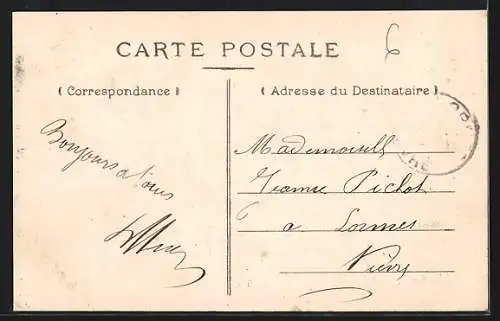 CARTE POSTALE
6
( Correspondance )
( Adresse du Destinataire )
Bonjours a tous
Mademoisell
Jeanne Pichot
a Lormes
Nièvre